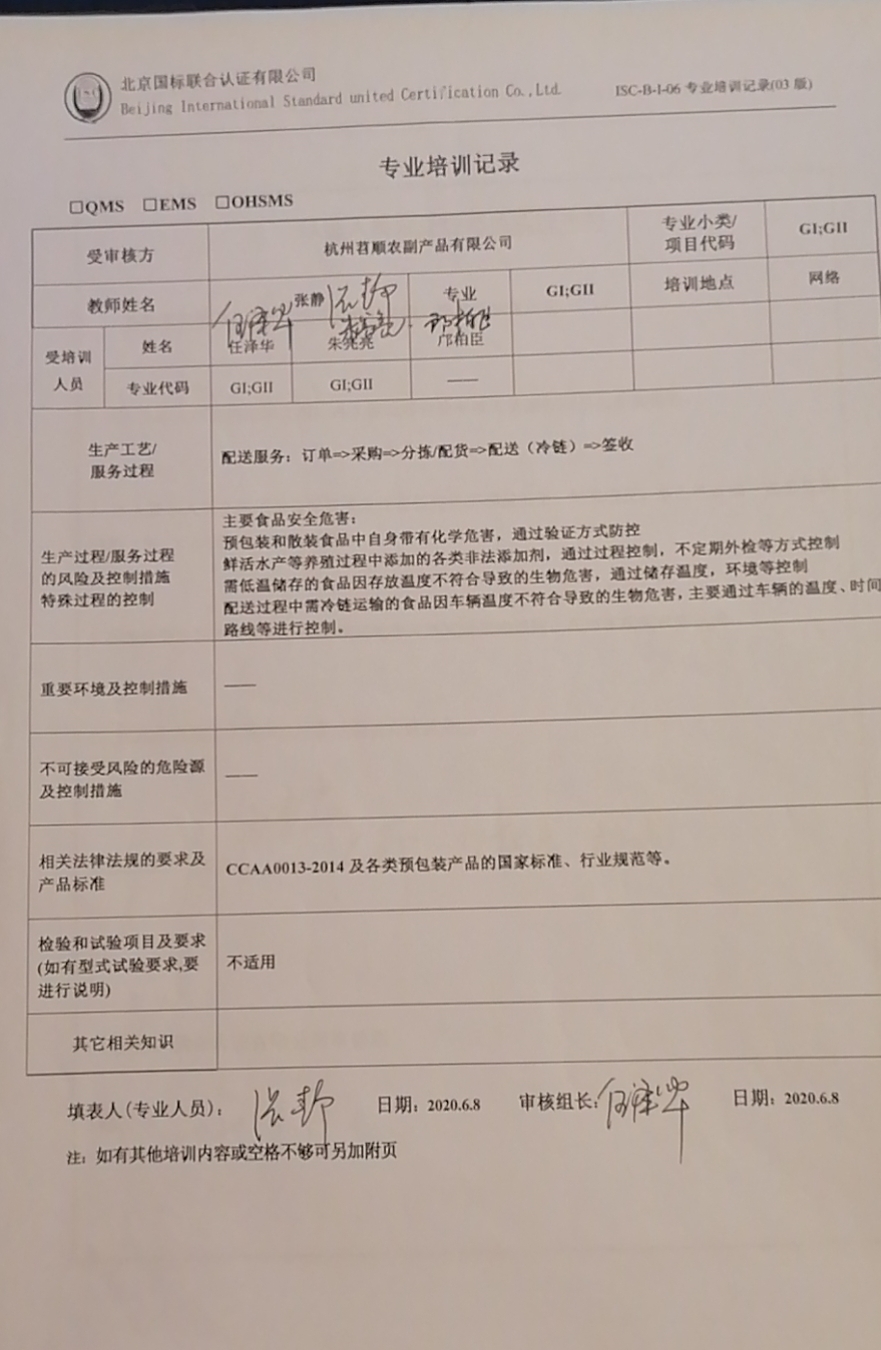 北京国标联合认证有限公司
Beijing International Standard united Certification Co.,Ltd.
ISC-B-I-06 专业培训记录(03 版)
专业培训记录
□QMS □EMS □OHSMS
受审核方
杭州苕顺农副产品有限公司
专业小类/
项目代码
GI;GII
教师姓名
张静 张静
专业
GI;GII
培训地点
网络
受培训
人员
姓名
任泽华
任泽华
朱亮亮
朱亮亮
邝柏臣
邝柏臣
专业代码
GI;GII
GI;GII
——
生产工艺/
服务过程
配送服务：订单=>采购=>分拣/配货=>配送（冷链）=>签收
生产过程/服务过程
的风险及控制措施
特殊过程的控制
主要食品安全危害：
预包装和散装食品中自身带有化学危害，通过验证方式防控
鲜活水产等养殖过程中添加的各类非法添加剂，通过过程控制，不定期外检等方式控制
需低温储存的食品因存放温度不符合导致的生物危害，通过储存温度，环境等控制
配送过程中需冷链运输的食品因车辆温度不符合导致的生物危害，主要通过车辆的温度、时间
路线等进行控制。
重要环境及控制措施
——
不可接受风险的危险源
及控制措施
——
相关法律法规的要求及
产品标准
CCAA0013-2014 及各类预包装产品的国家标准、行业规范等。
检验和试验项目及要求
(如有型式试验要求,要
进行说明)
不适用
其它相关知识
填表人(专业人员)： 张静 日期：2020.6.8 审核组长: 任泽华 日期：2020.6.8
注：如有其他培训内容或空格不够可另加附页